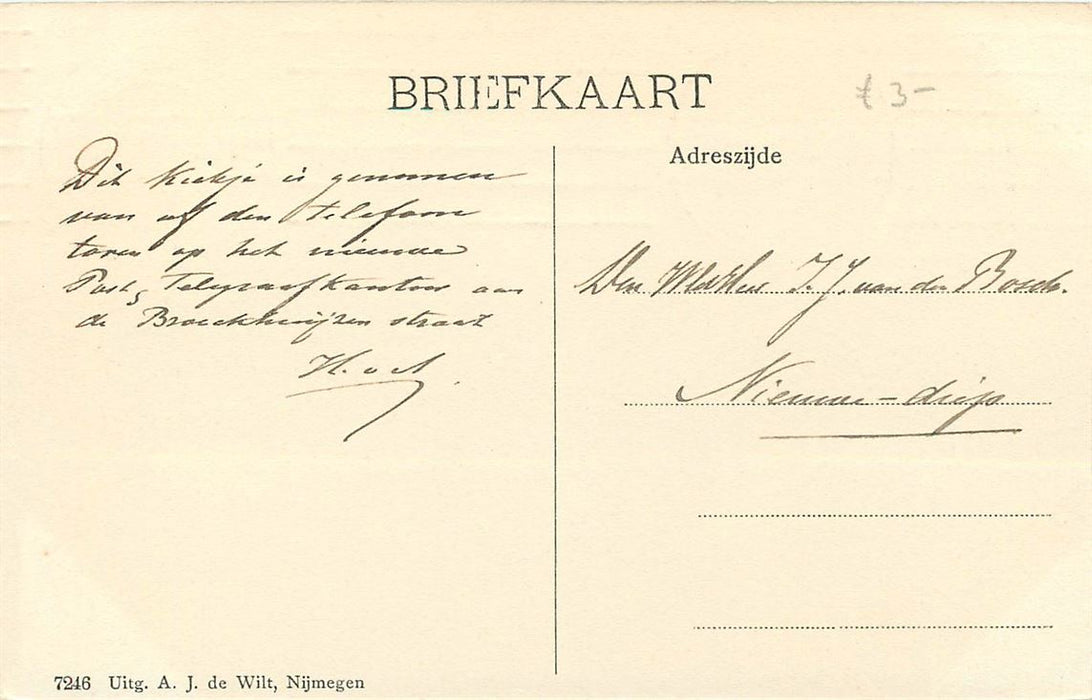 BRIEFKAART
f 3-
Adreszijde
Dit kiekje is genomen
van af den telefoon
toren op het nieuwe
Post & Telegraafkantoor aan
de Broeckhuijzen straat
H. v. A.
Den WelEdHeer J. J. van den Bosch.
Nieuwe-diep
7246 Uitg. A. J. de Wilt, Nijmegen